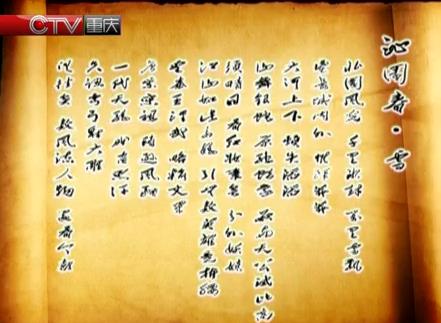 CTV重庆
沁园春·雪
北国风光 千里冰封 万里雪飘
望长城内外 惟余莽莽
大河上下 顿失滔滔
山舞银蛇 原驰蜡象 欲与天公试比高
须晴日 看红妆素裹 分外妖娆
江山如此多娇 引无数英雄竞折腰
惜秦皇汉武 略输文采
唐宗宋祖 稍逊风骚
一代天骄 成吉思汗
只识弯弓射大雕
俱往矣 数风流人物 还看今朝